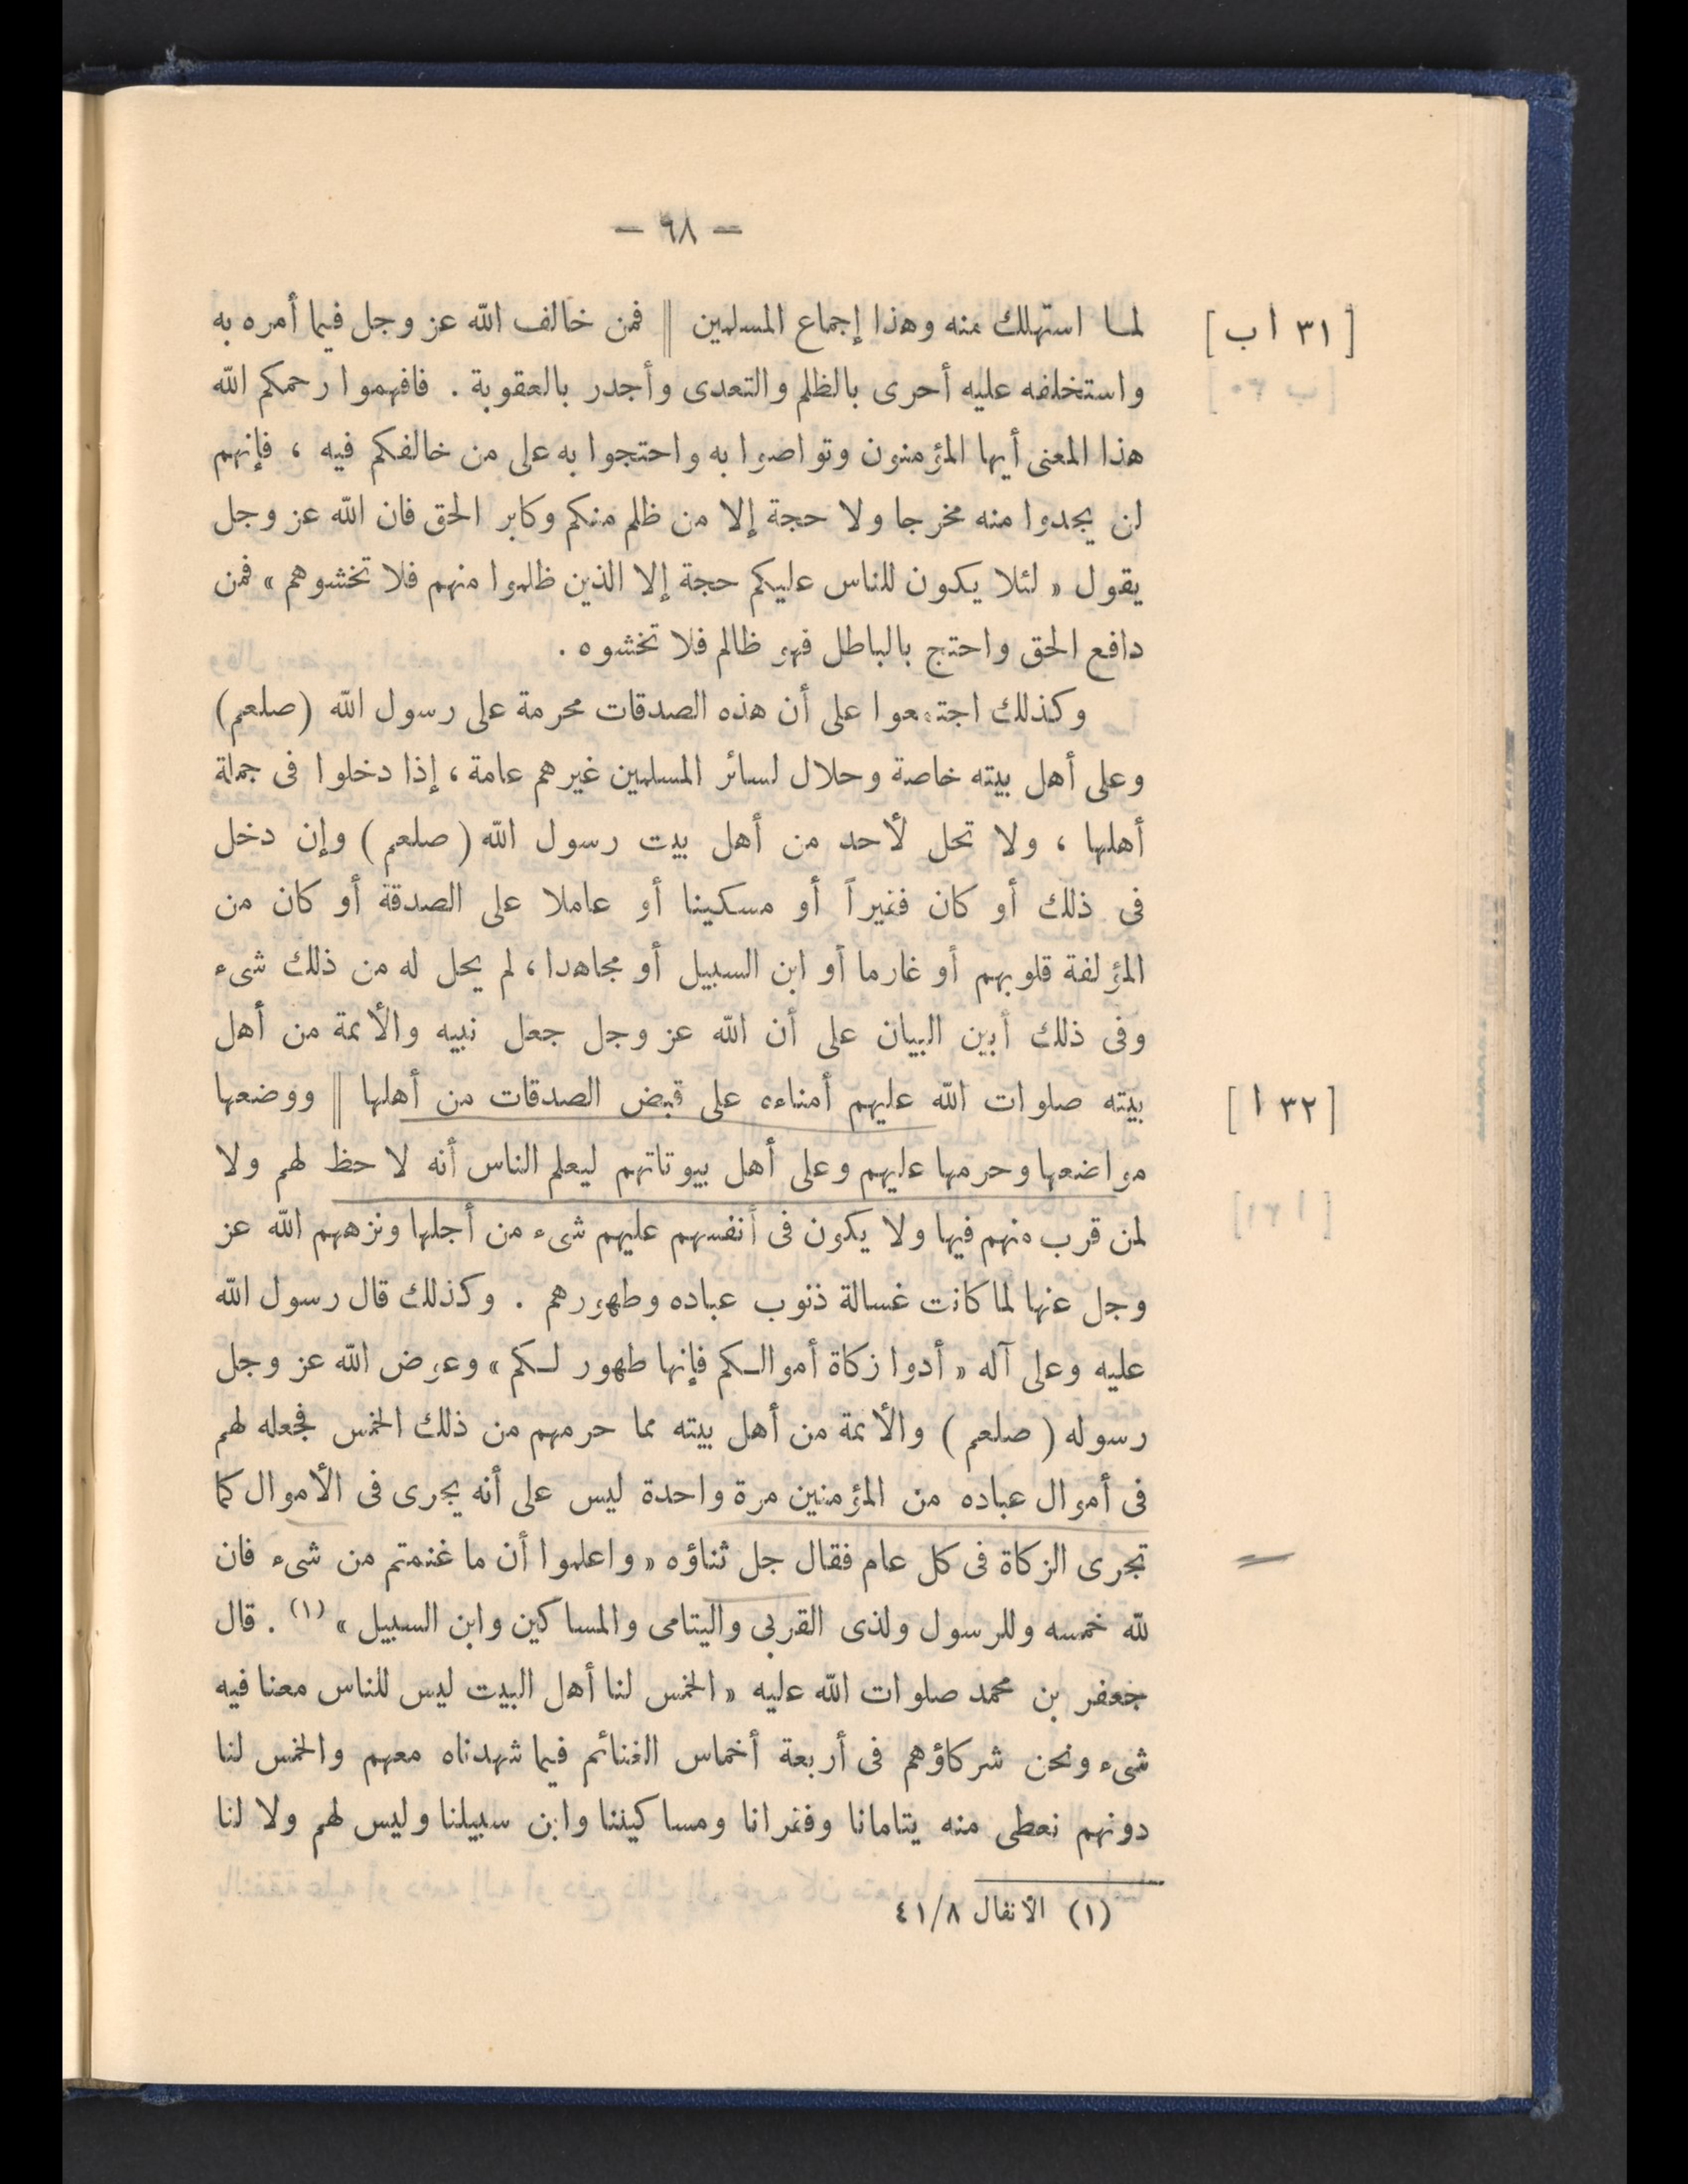 — ٦٨ —
[ ٣١ ا ب ]
لما استهلك منه وهذا إجماع المسلمين || فمن خالف الله عز وجل فيما أمره به
واستخلفه عليه أحرى بالظلم والتعدى وأجدر بالعقوبة . فافهموا رحمكم الله
هذا المعنى أيها المؤمنون وتواصوا به واحتجوا به على من خالفكم فيه ، فإنهم
لن يجدوا منه مخرجا ولا حجة إلا من ظلم منكم وكابر الحق فان الله عز وجل
يقول « لئلا يكون للناس عليكم حجة إلا الذين ظلموا منهم فلا تخشوهم » فمن
دافع الحق واحتج بالباطل فهو ظالم فلا تخشوه .
وكذلك اجتمعوا على أن هذه الصدقات محرمة على رسول الله (صلعم)
وعلى أهل بيته خاصة وحلال لسائر المسلمين غيرهم عامة ، إذا دخلوا فى جملة
أهلها ، ولا تحل لأحد من أهل بيت رسول الله ( صلعم ) وإن دخل
فى ذلك أو كان فقيراً أو مسكينا أو عاملا على الصدقة أو كان من
المؤلفة قلوبهم أو غارما أو ابن السبيل أو مجاهدا ، لم يحل له من ذلك شىء
وفى ذلك أبين البيان على أن الله عز وجل جعل نبيه والأئمة من أهل
[ ٣٢ ا ]
بيته صلوات الله عليهم أمناءه على قبض الصدقات من أهلها || ووضعها
مواضعها وحرمها عليهم وعلى أهل بيوتاتهم ليعلم الناس أنه لا حظ لهم ولا
لمن قرب منهم فيها ولا يكون فى أنفسهم عليهم شىء من أجلها ونزههم الله عز
وجل عنها لما كانت غسالة ذنوب عباده وطهورهم . وكذلك قال رسول الله
عليه وعلى آله « أدوا زكاة أموالـكم فإنها طهور لـكم » وعوض الله عز وجل
رسوله ( صلعم ) والأئمة من أهل بيته مما حرمهم من ذلك الخمس فجعله لهم
فى أموال عباده من المؤمنين مرة واحدة ليس على أنه يجرى فى الأموال كما
تجرى الزكاة فى كل عام فقال جل ثناؤه « واعلموا أن ما غنمتم من شىء فان
لله خمسه وللرسول ولذى القربى واليتامى والمساكين وابن السبيل » (١) . قال
جعفر بن محمد صلوات الله عليه « الخمس لنا أهل البيت ليس للناس معنا فيه
شىء ونحن شركاؤهم فى أربعة أخماس الغنائم فيما شهدناه معهم والخمس لنا
دونهم نعطى منه يتامانا وفقرانا ومساكيننا وابن سبيلنا وليس لهم ولا لنا
(١) الأنفال ٤١/٨